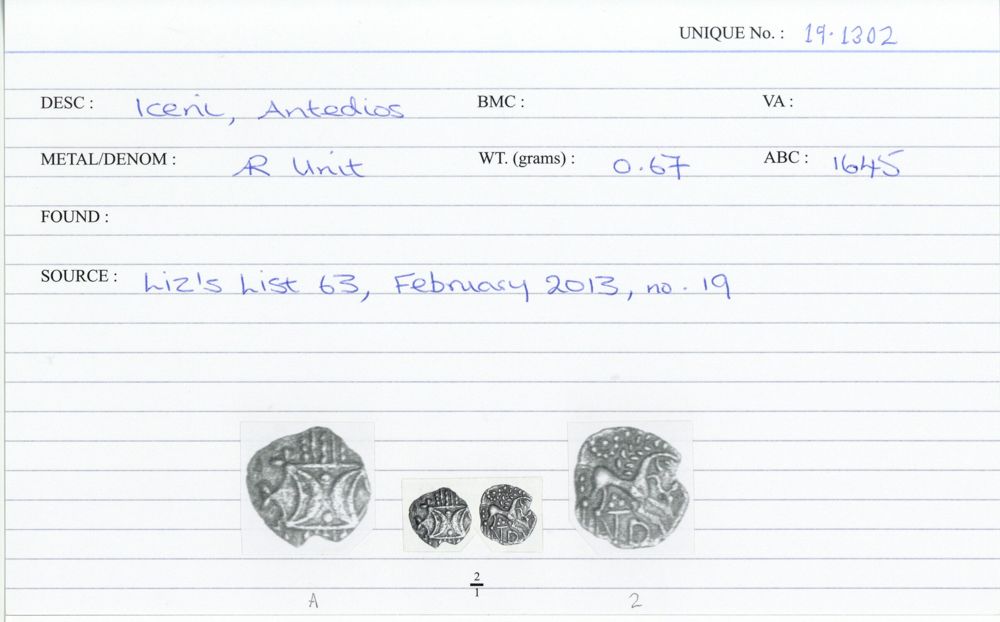 UNIQUE No. : 19.1302
DESC : Iceni, Antedios BMC : VA :
METAL/DENOM : AR Unit WT. (grams) : 0.67 ABC : 1645
FOUND :
SOURCE : Liz's List 63, February 2013, no. 19
TD
2
1
A 2